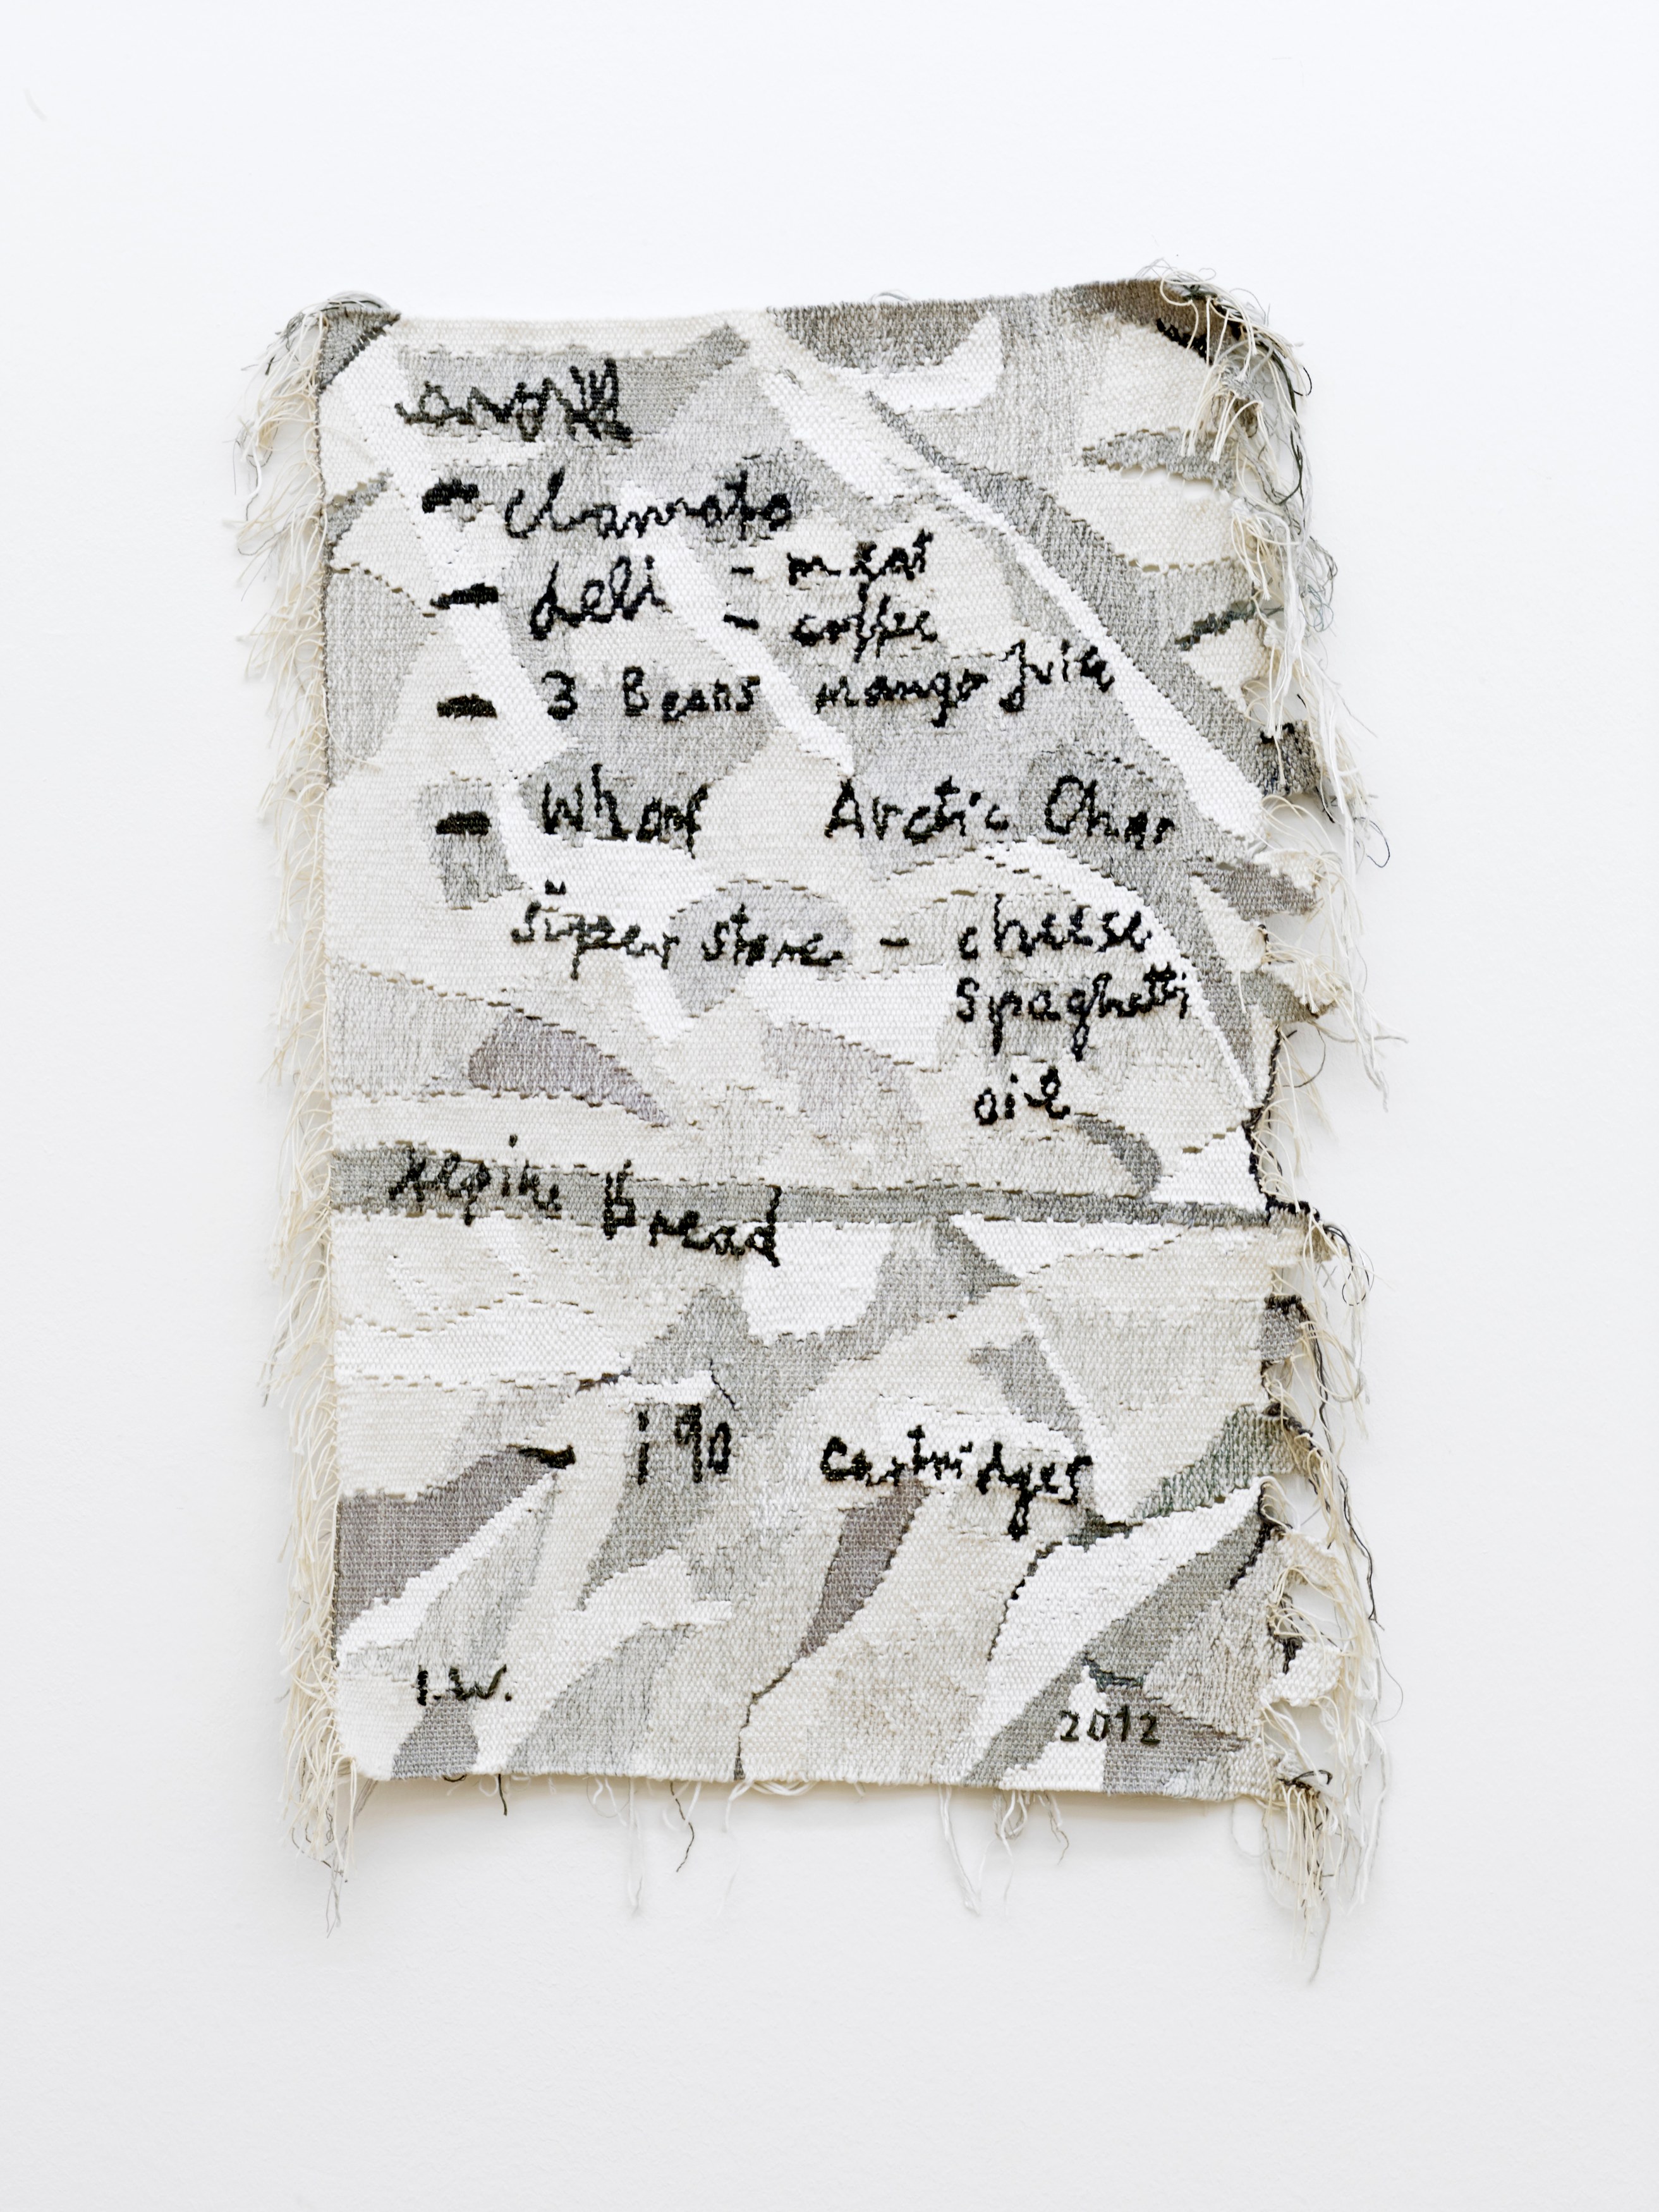 - Clamato
- deli - meat
- coffee
- 3 Beans mango Juice
- Wharf Arctic Char
Süper store - cheese
Spaghetti
oil
Alpine Bread
- i 90 cartridges
I.W.
2012